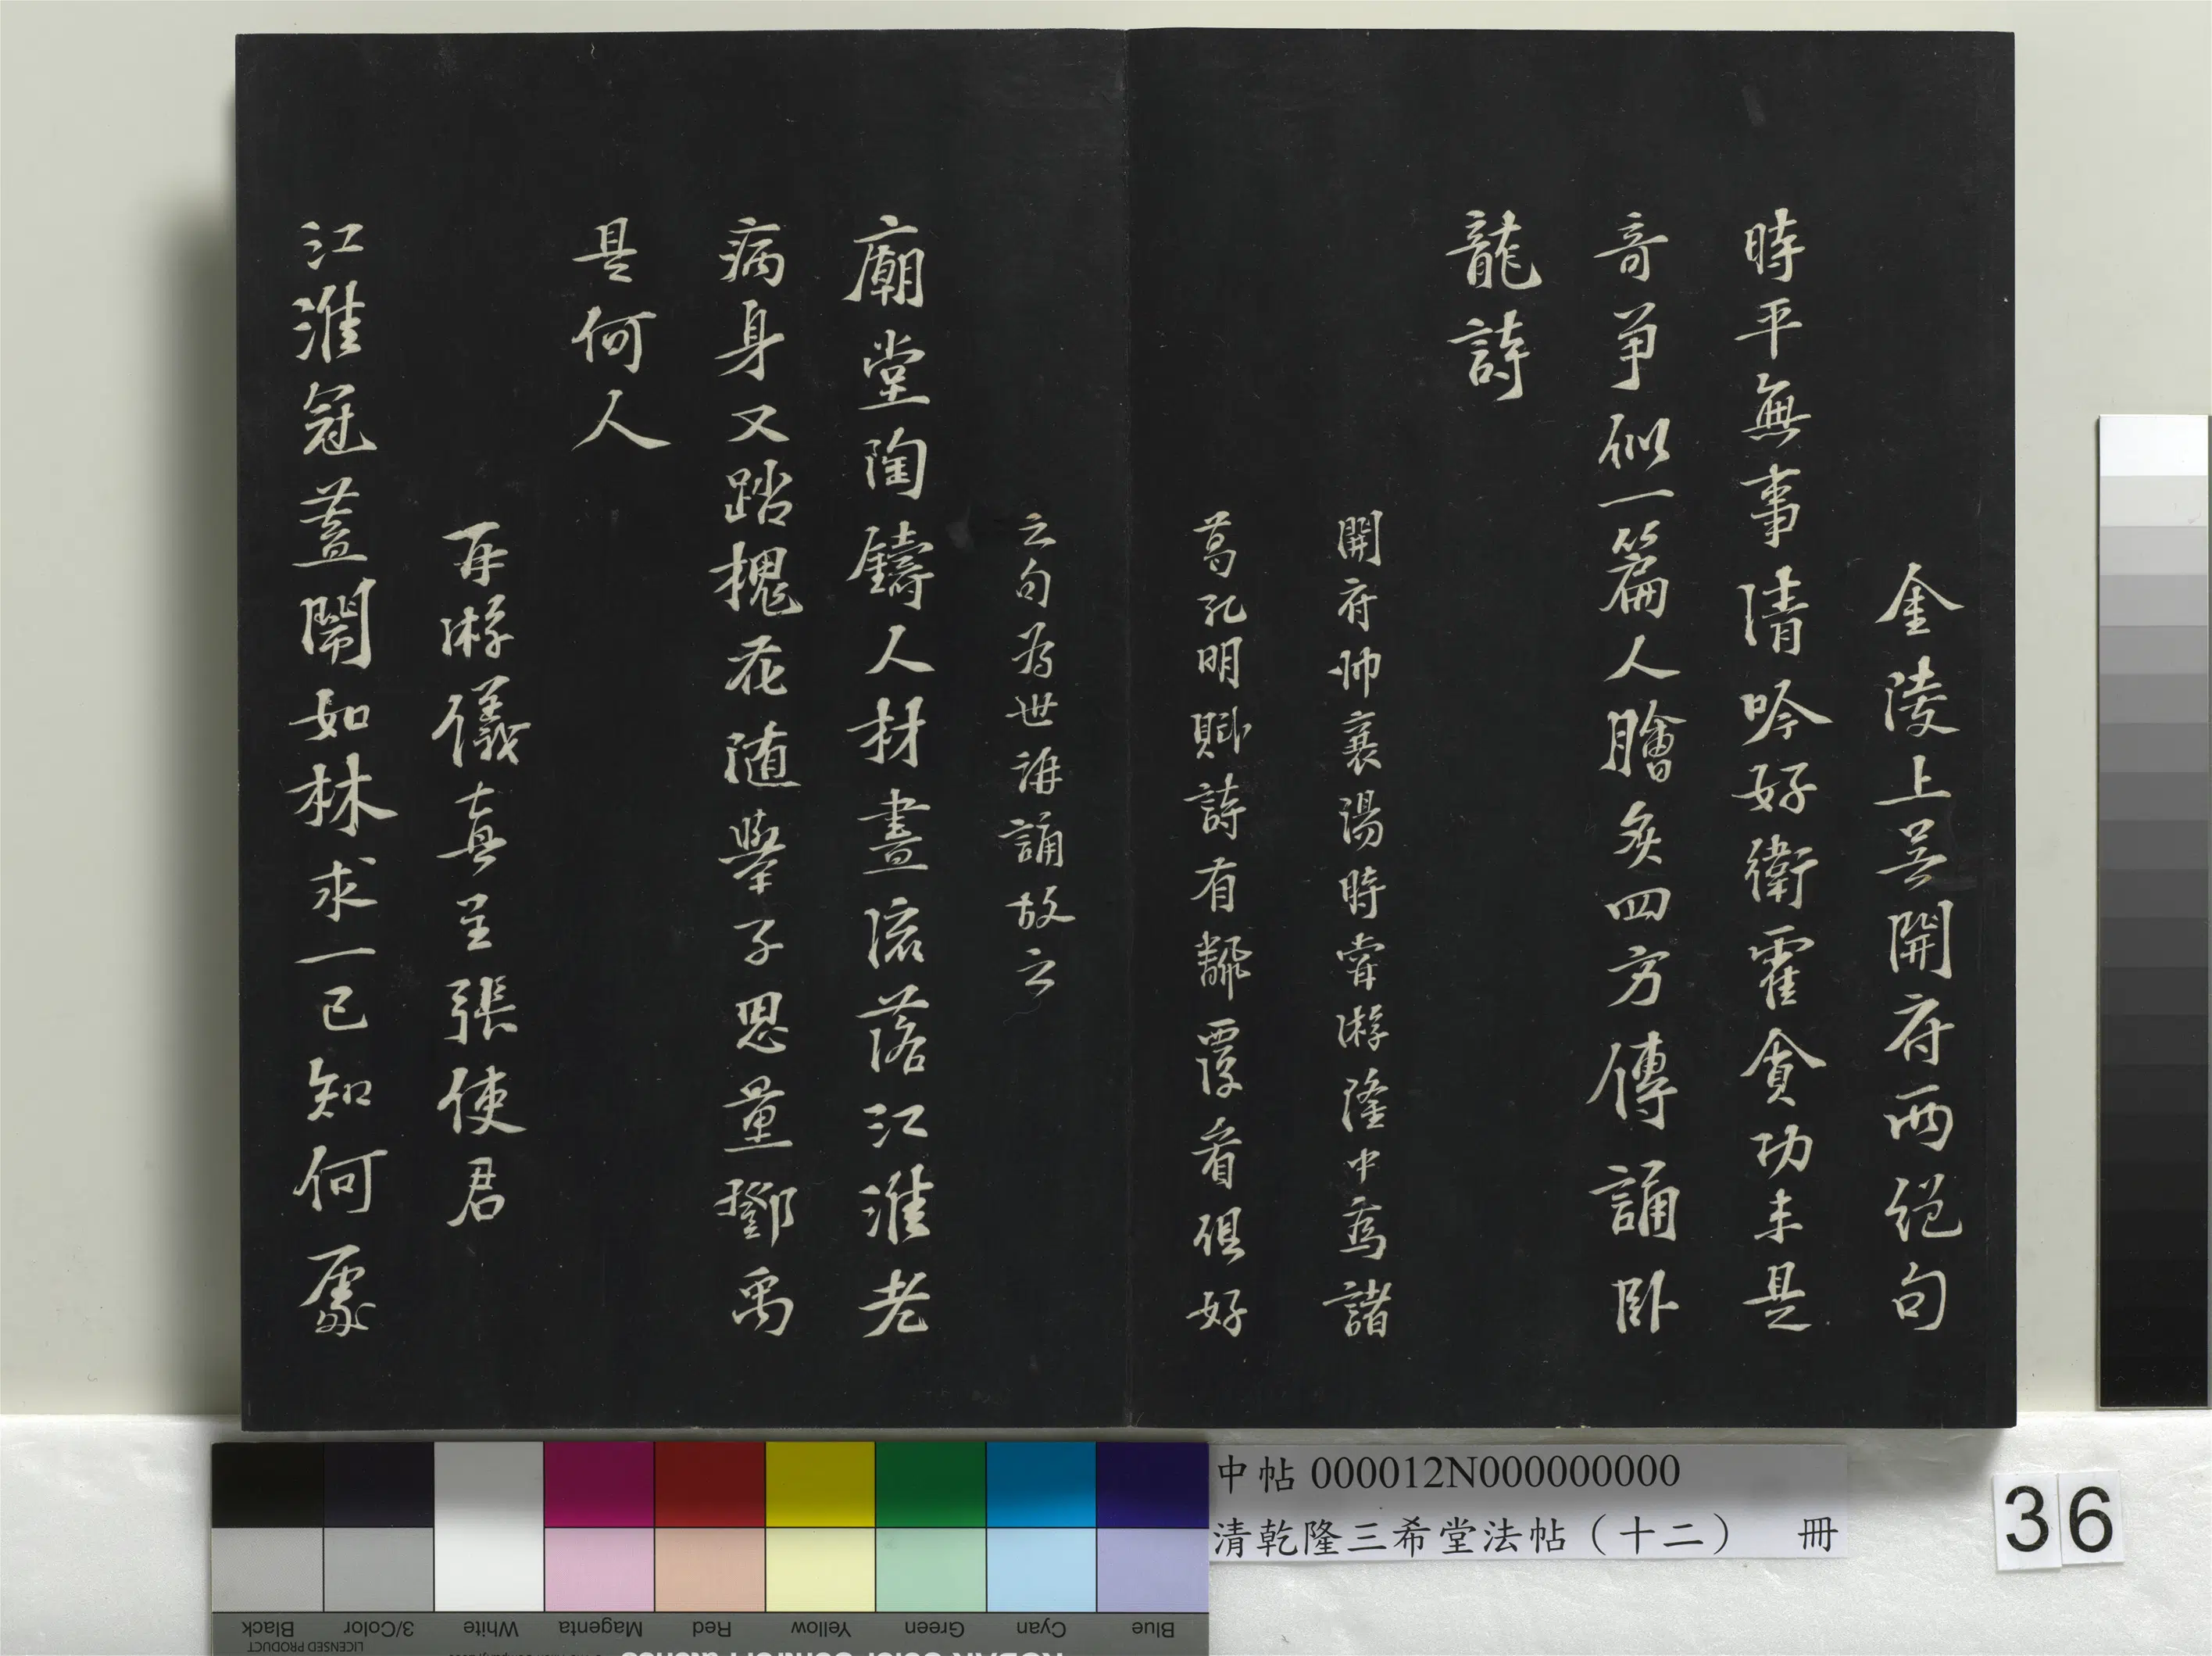 金陵上吳開府兩絕句
時平無事清吟好衛霍貪功未是
奇爭似一篇人膾炙四方傳誦卧
龍詩
開府帥襄陽時嘗游隆中為諸
葛孔明賦詩有翻覆看俱好
之句為世誦故云
廟堂陶鑄人材盡流落江淮老
病身又踏槐花隨舉子思量鄧禹
是何人
再游儀真呈張使君
江淮冠蓋鬧如林求一已知何處
中帖 000012N000000000
清乾隆三希堂法帖（十二） 冊
36
Black
3/Color
White
Magenta
Red
Yellow
Green
Cyan
Blue
LICENSED PRODUCT